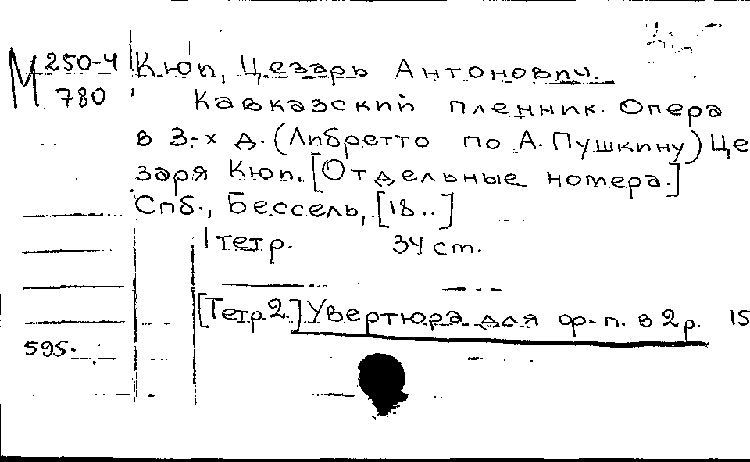 М 250-4
780
Кюи, Цезарь Антонович.
Кавказский пленник. Опера
в 3-х д. (Либретто по А. Пушкину) Це
заря Кюи. [Отдельные номера.]
Спб., Бессель, [18..]
1 тетр. 34 cm.
[Тетр 2.] Увертюра для ф-п. в 2 р. 15
595.